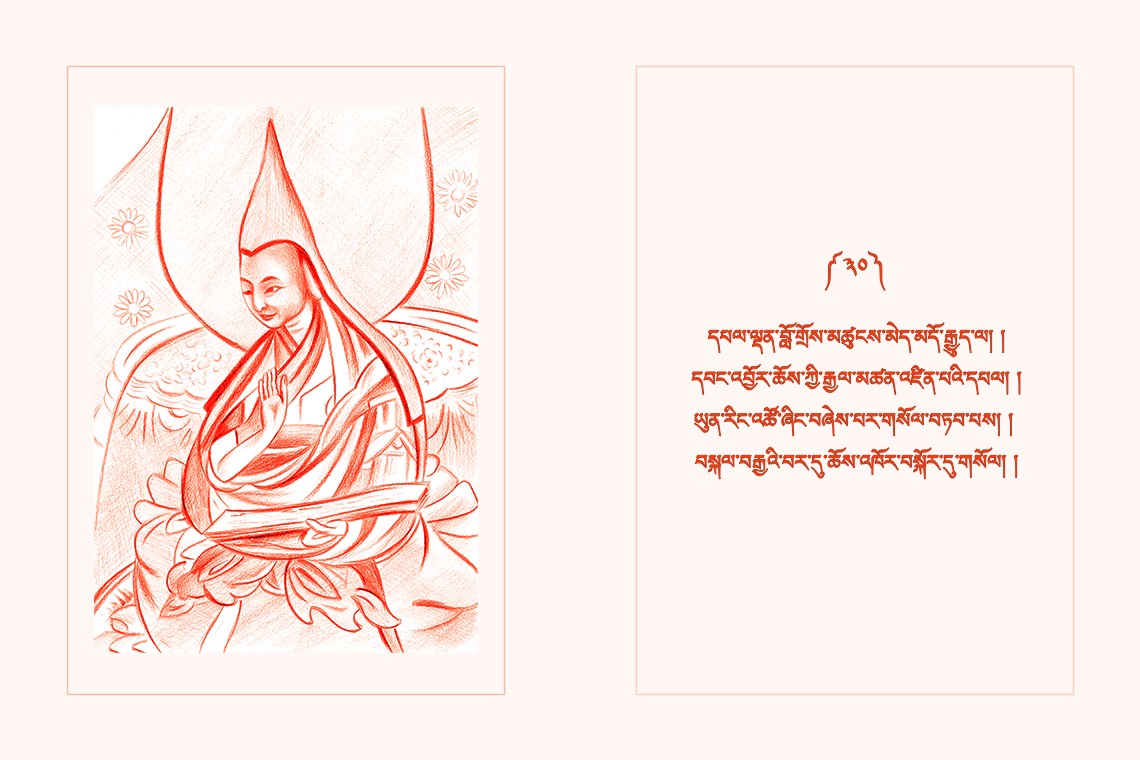 ༼༣༠༽
དཔལ་ལྡན་བློ་གྲོས་མཚུངས་མེད་མདོ་རྒྱུད་ལ། །
དབང་འབྱོར་ཆོས་ཀྱི་རྒྱལ་མཚན་འཛིན་པའི་དཔལ། །
ཡུན་རིང་འཚོ་ཞིང་བཞེས་པར་གསོལ་བཏབ་པས། །
བསྐལ་བརྒྱའི་བར་དུ་ཆོས་འཁོར་བསྐོར་དུ་གསོལ། །